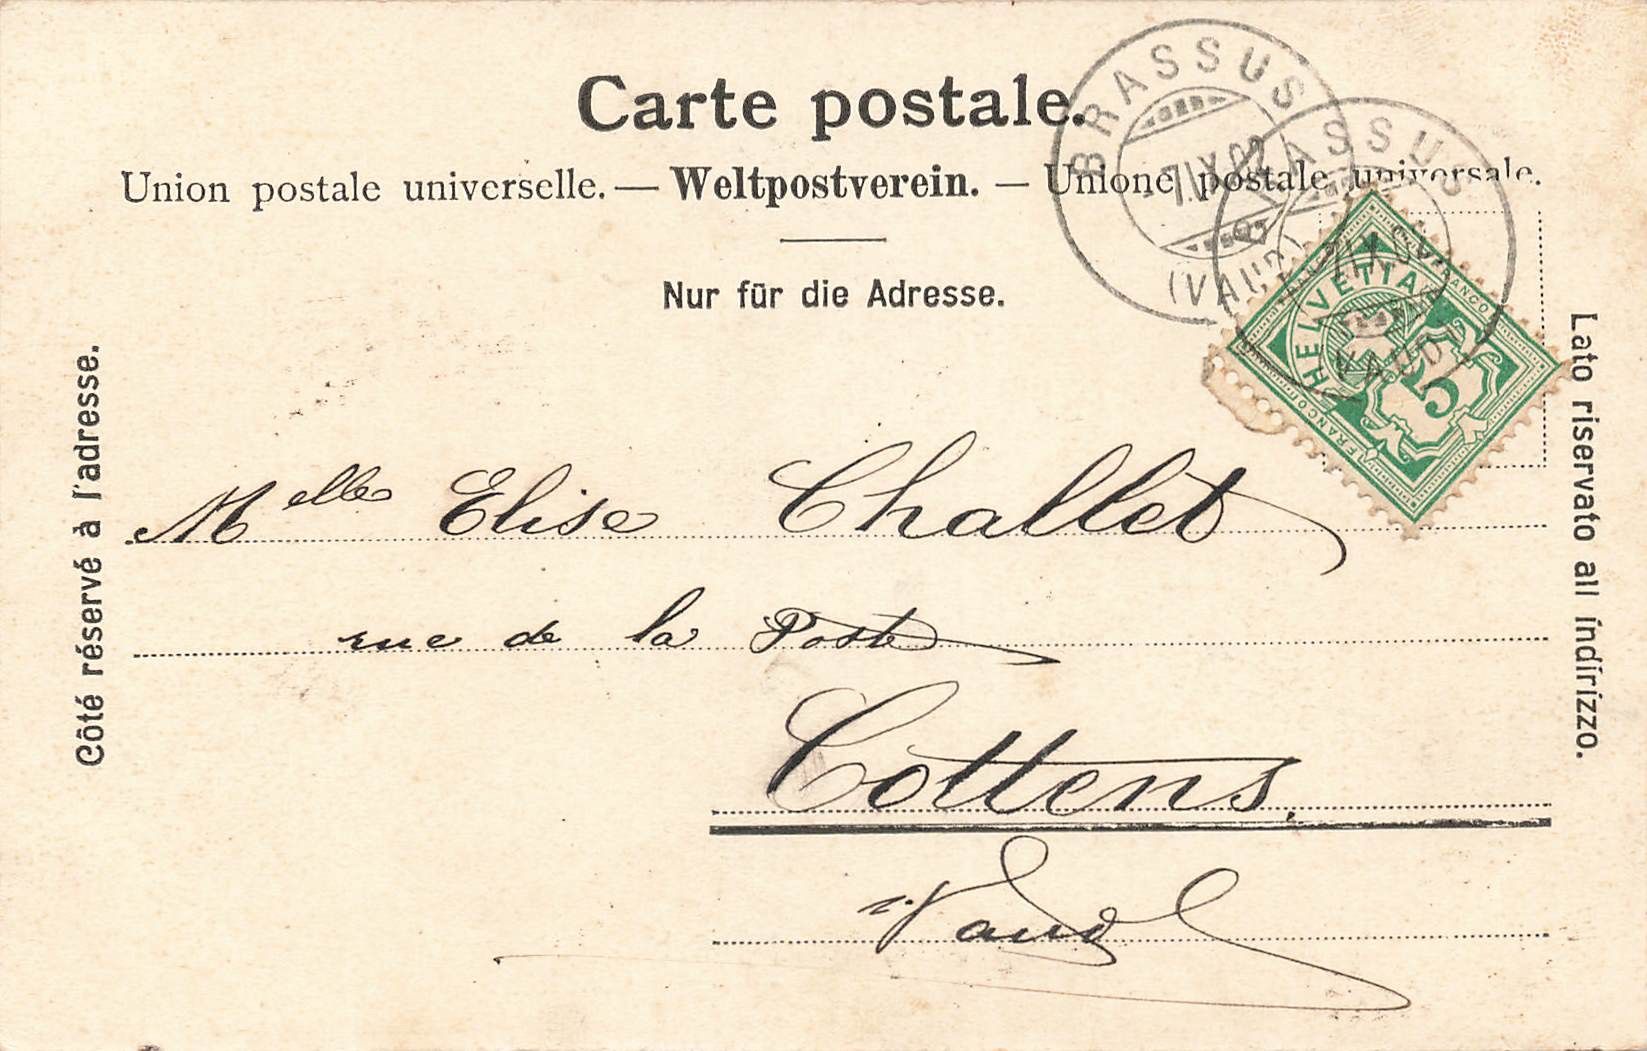 Carte postale.
Union postale universelle. — Weltpostverein. — Unione postale universale.
Nur für die Adresse.
Côté réservé à l'adresse.
Lato riservato all indirizzo.
BRASSUS
7.IX.02
(VAUD)
BRASSUS
(VAUD)
HELVETIA
FRANCO
FRANCO
5
Melle Elise Challet
rue de la Poste
Cottens.
Vaud